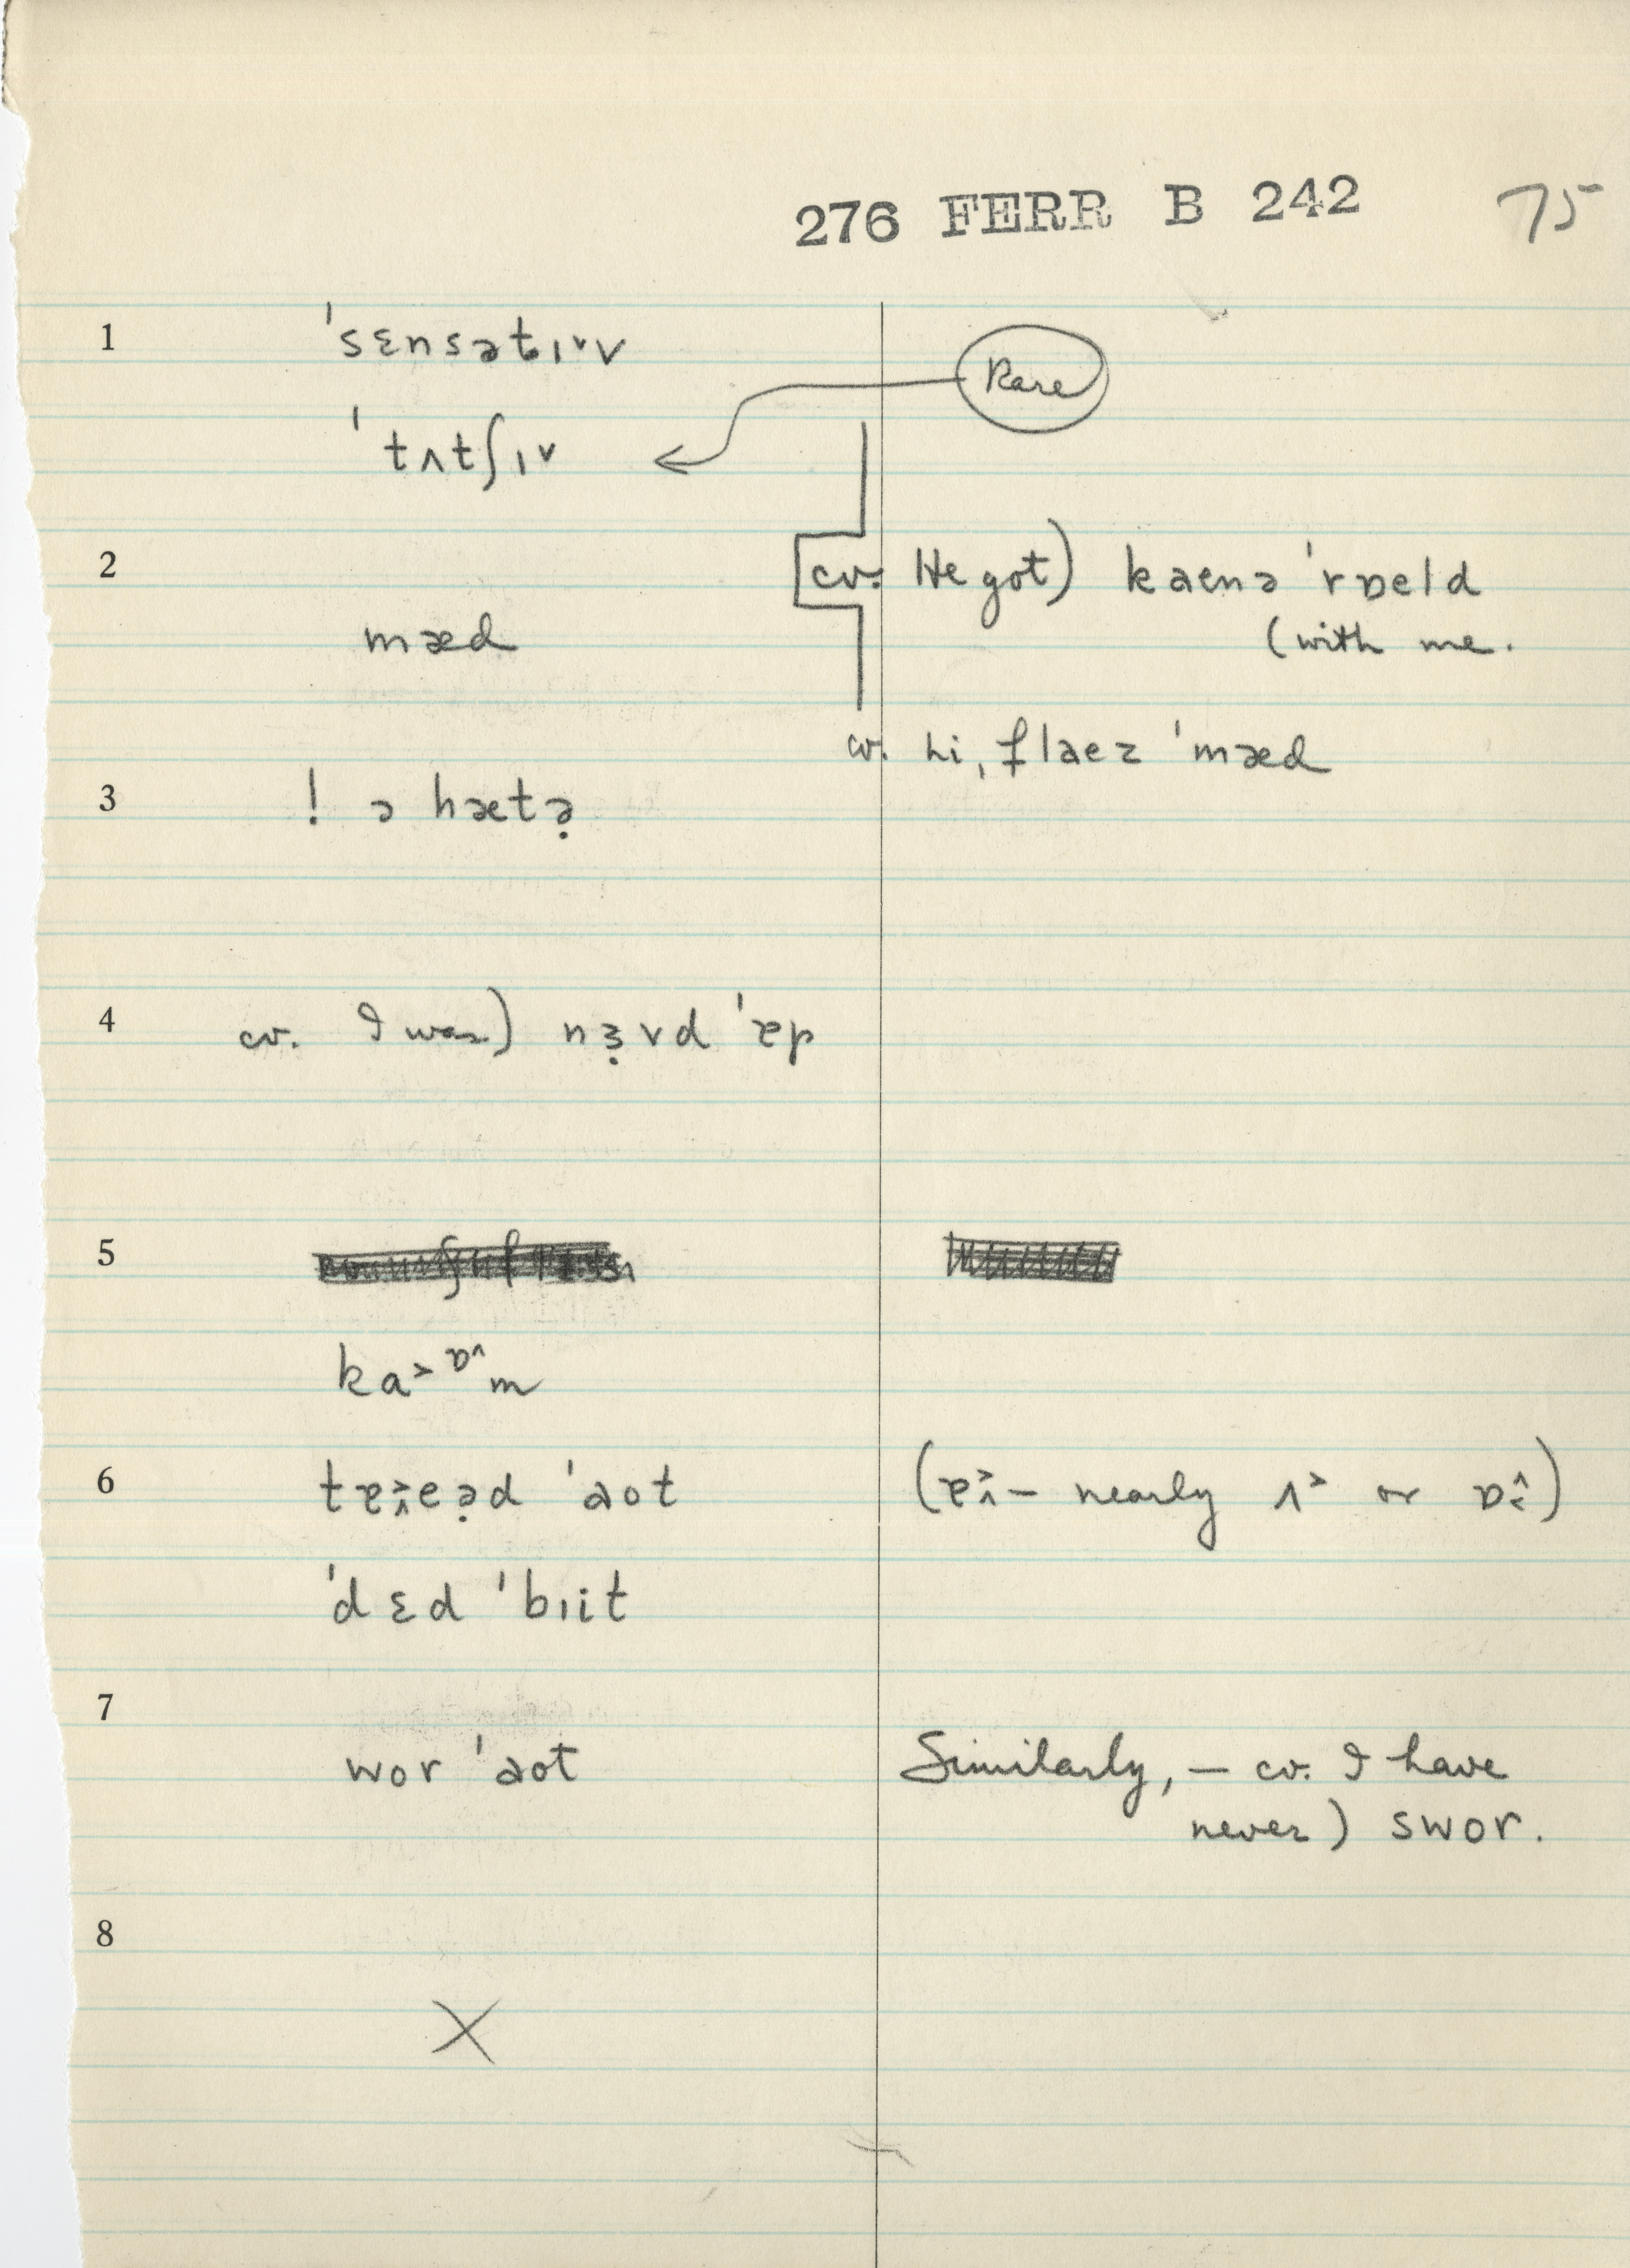 276 FERR B 242 75
1 ˈsɛnsət̬ɪ˅v
Rare
ˈtʌtʃɪ˅
2 cv. He got) kaenə ˈrɒeld
mæd (with me.
cv. hi, flaez ˈmæd
3 ! ə hætə̣
4 cv. I was) nɜ̣vd ˈɐp
5
ka˃ɒ^m
6 tɐ˄˃eə̣d ˈaot (ɐ˄˃ – nearly ʌ˃ or ɒ˂^)
ˈdɛd ˈbɪit
7
wor ˈaot Similarly, – cv. I have
never) swor.
8
X